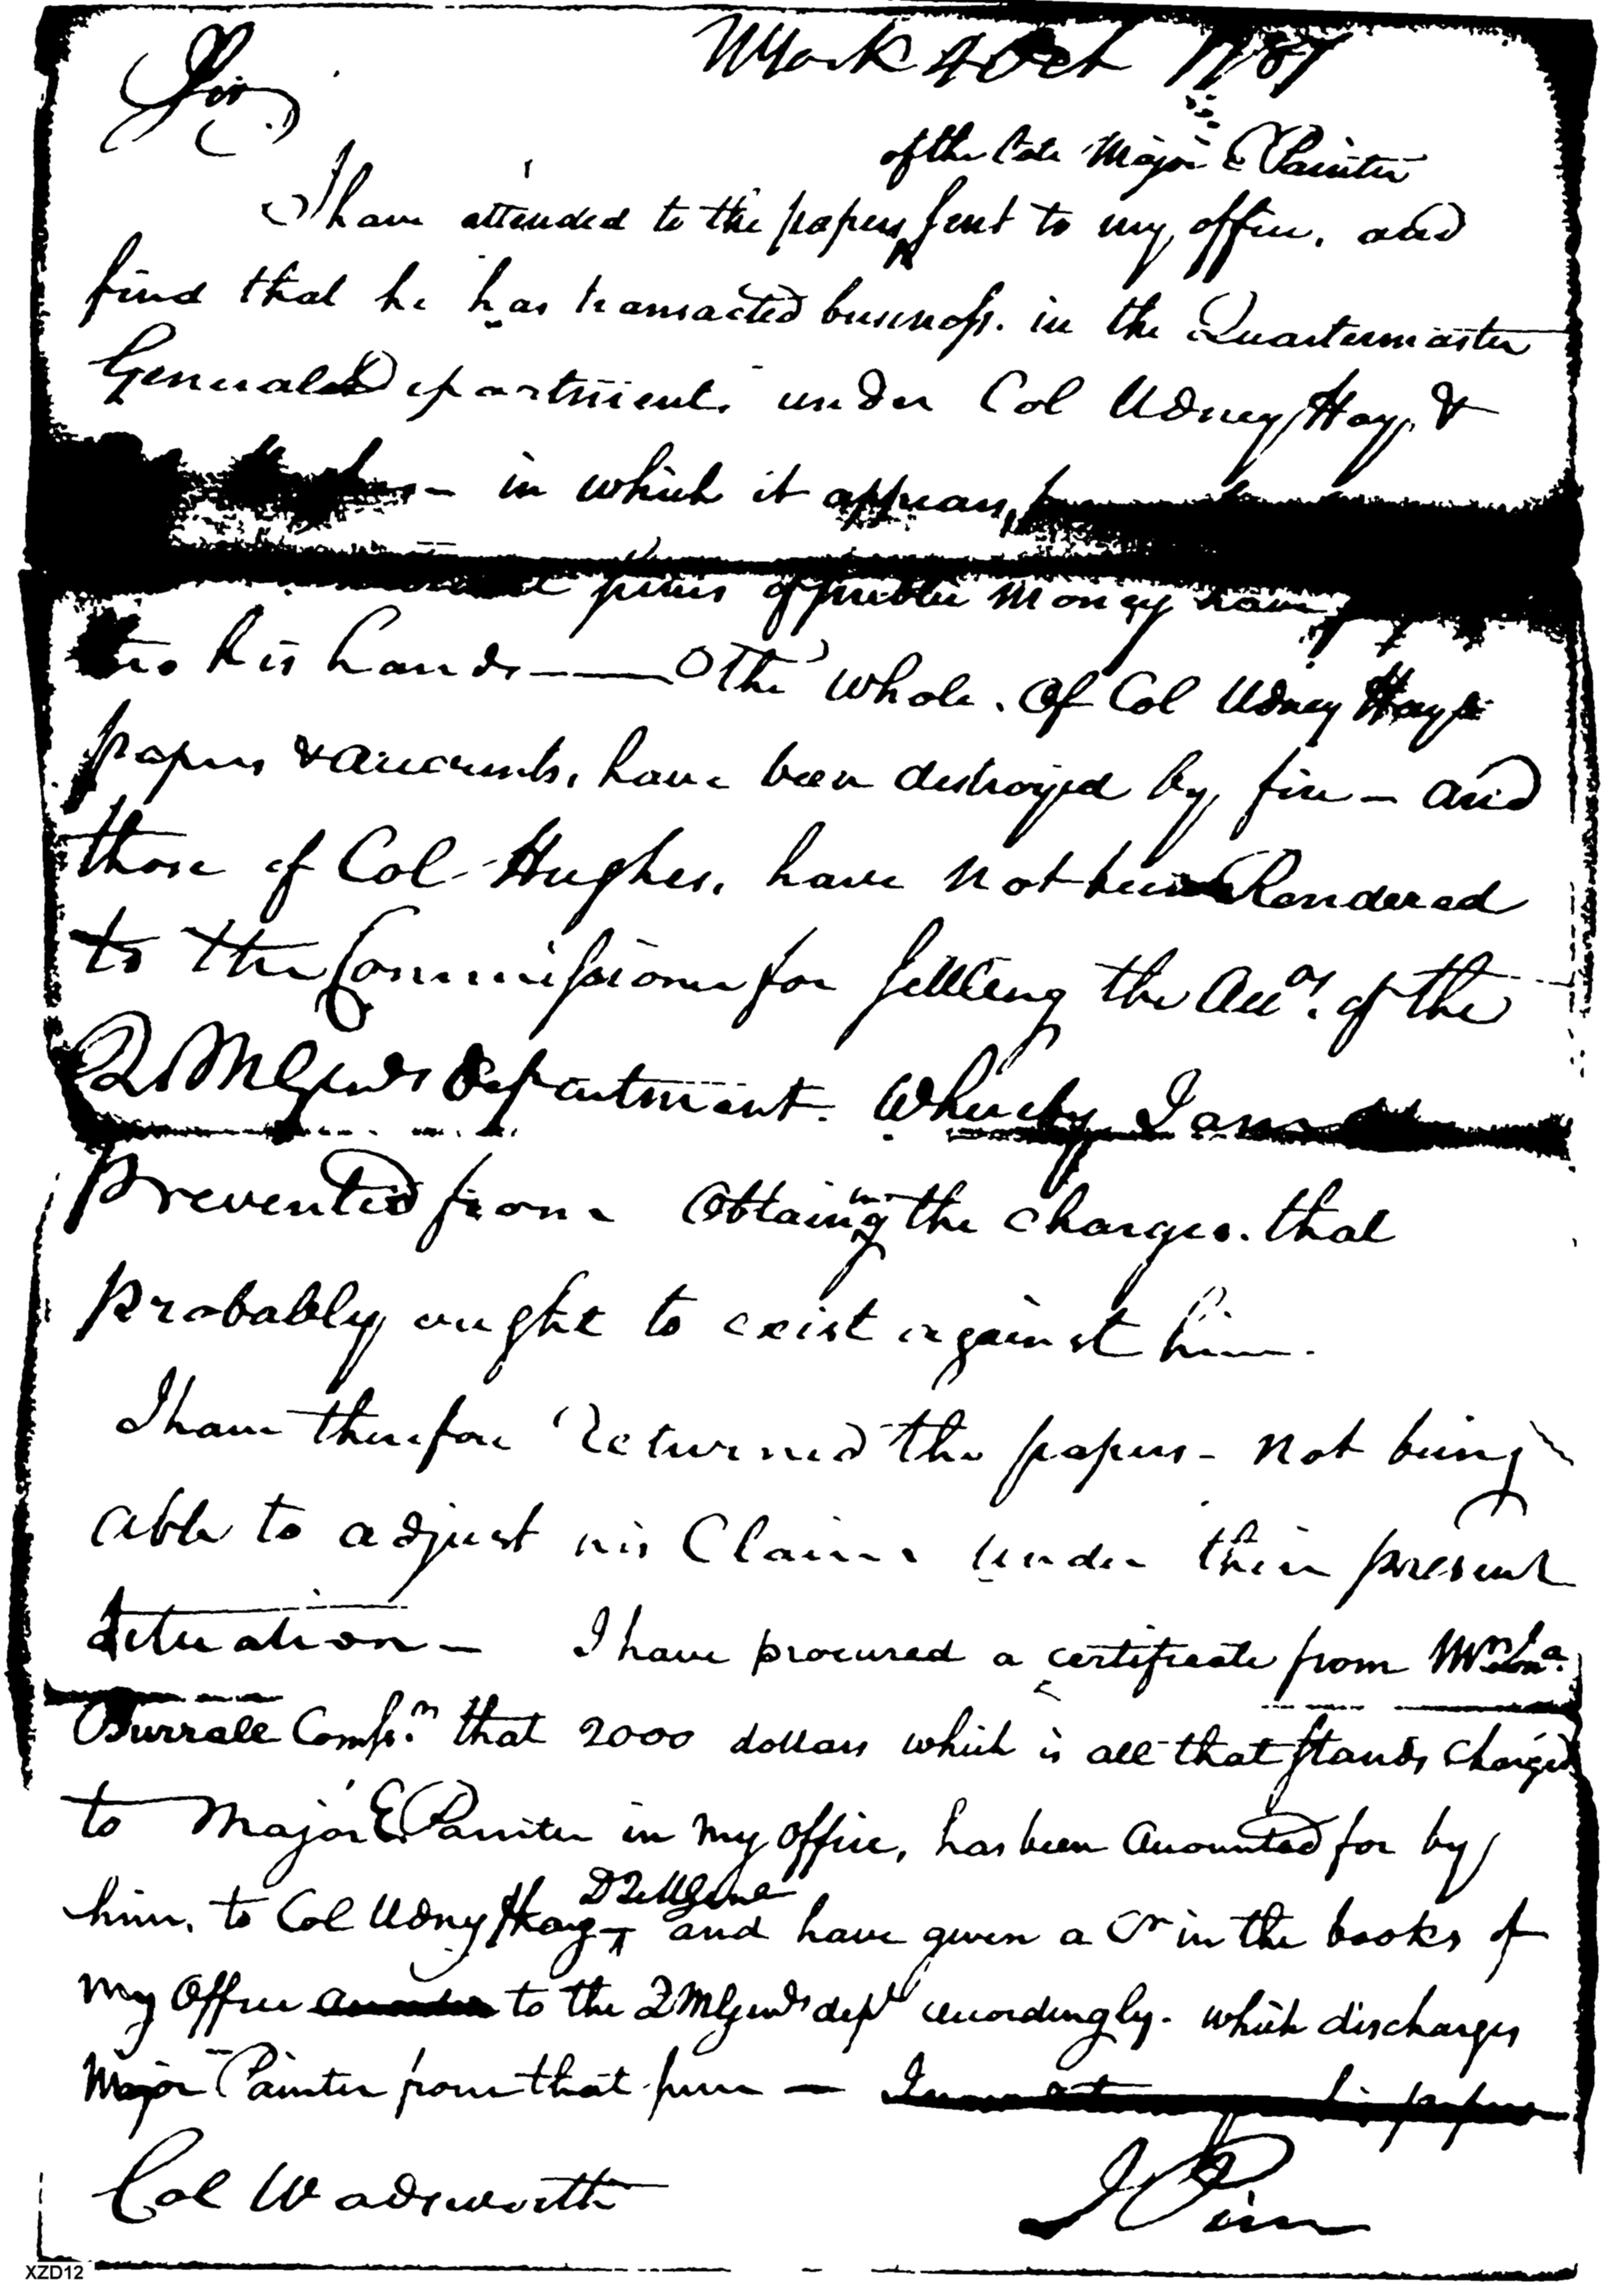 NYork 4 Oct 1787
Sir
of the late Major E Painter
I have attended to the papers sent to my office, and
find that he has transacted business in the Quartermaster
Generals Department under Col Udney Hay &
in which it appears,
pieces of public Money have
his hands — The whole of Col Udney Hays
papers & accounts, have been destroyed by fire — and
those of Col Hughes, have not been Rendered
to the Commissioner for settling the Accots. of the
Q MGenls department. Whereby I am
prevented from Obtaining the charges that
probably ought to exist against him.
I have therefore returned the papers — not being
able to adjust his Claims under their present
situation — I have procured a certificate from
Burrall Comsr. that 2000 dollars which is all that stands charged
to Major E Painter in my office, has been Accounted for by
D Q MGenl
him, to Col Udny Hay and have given a Cr in the books of
my Office to the Q MGenls dept accordingly. which discharges
Major Painter from that sum —
Col Wadsworth
J Pierce
XZD12